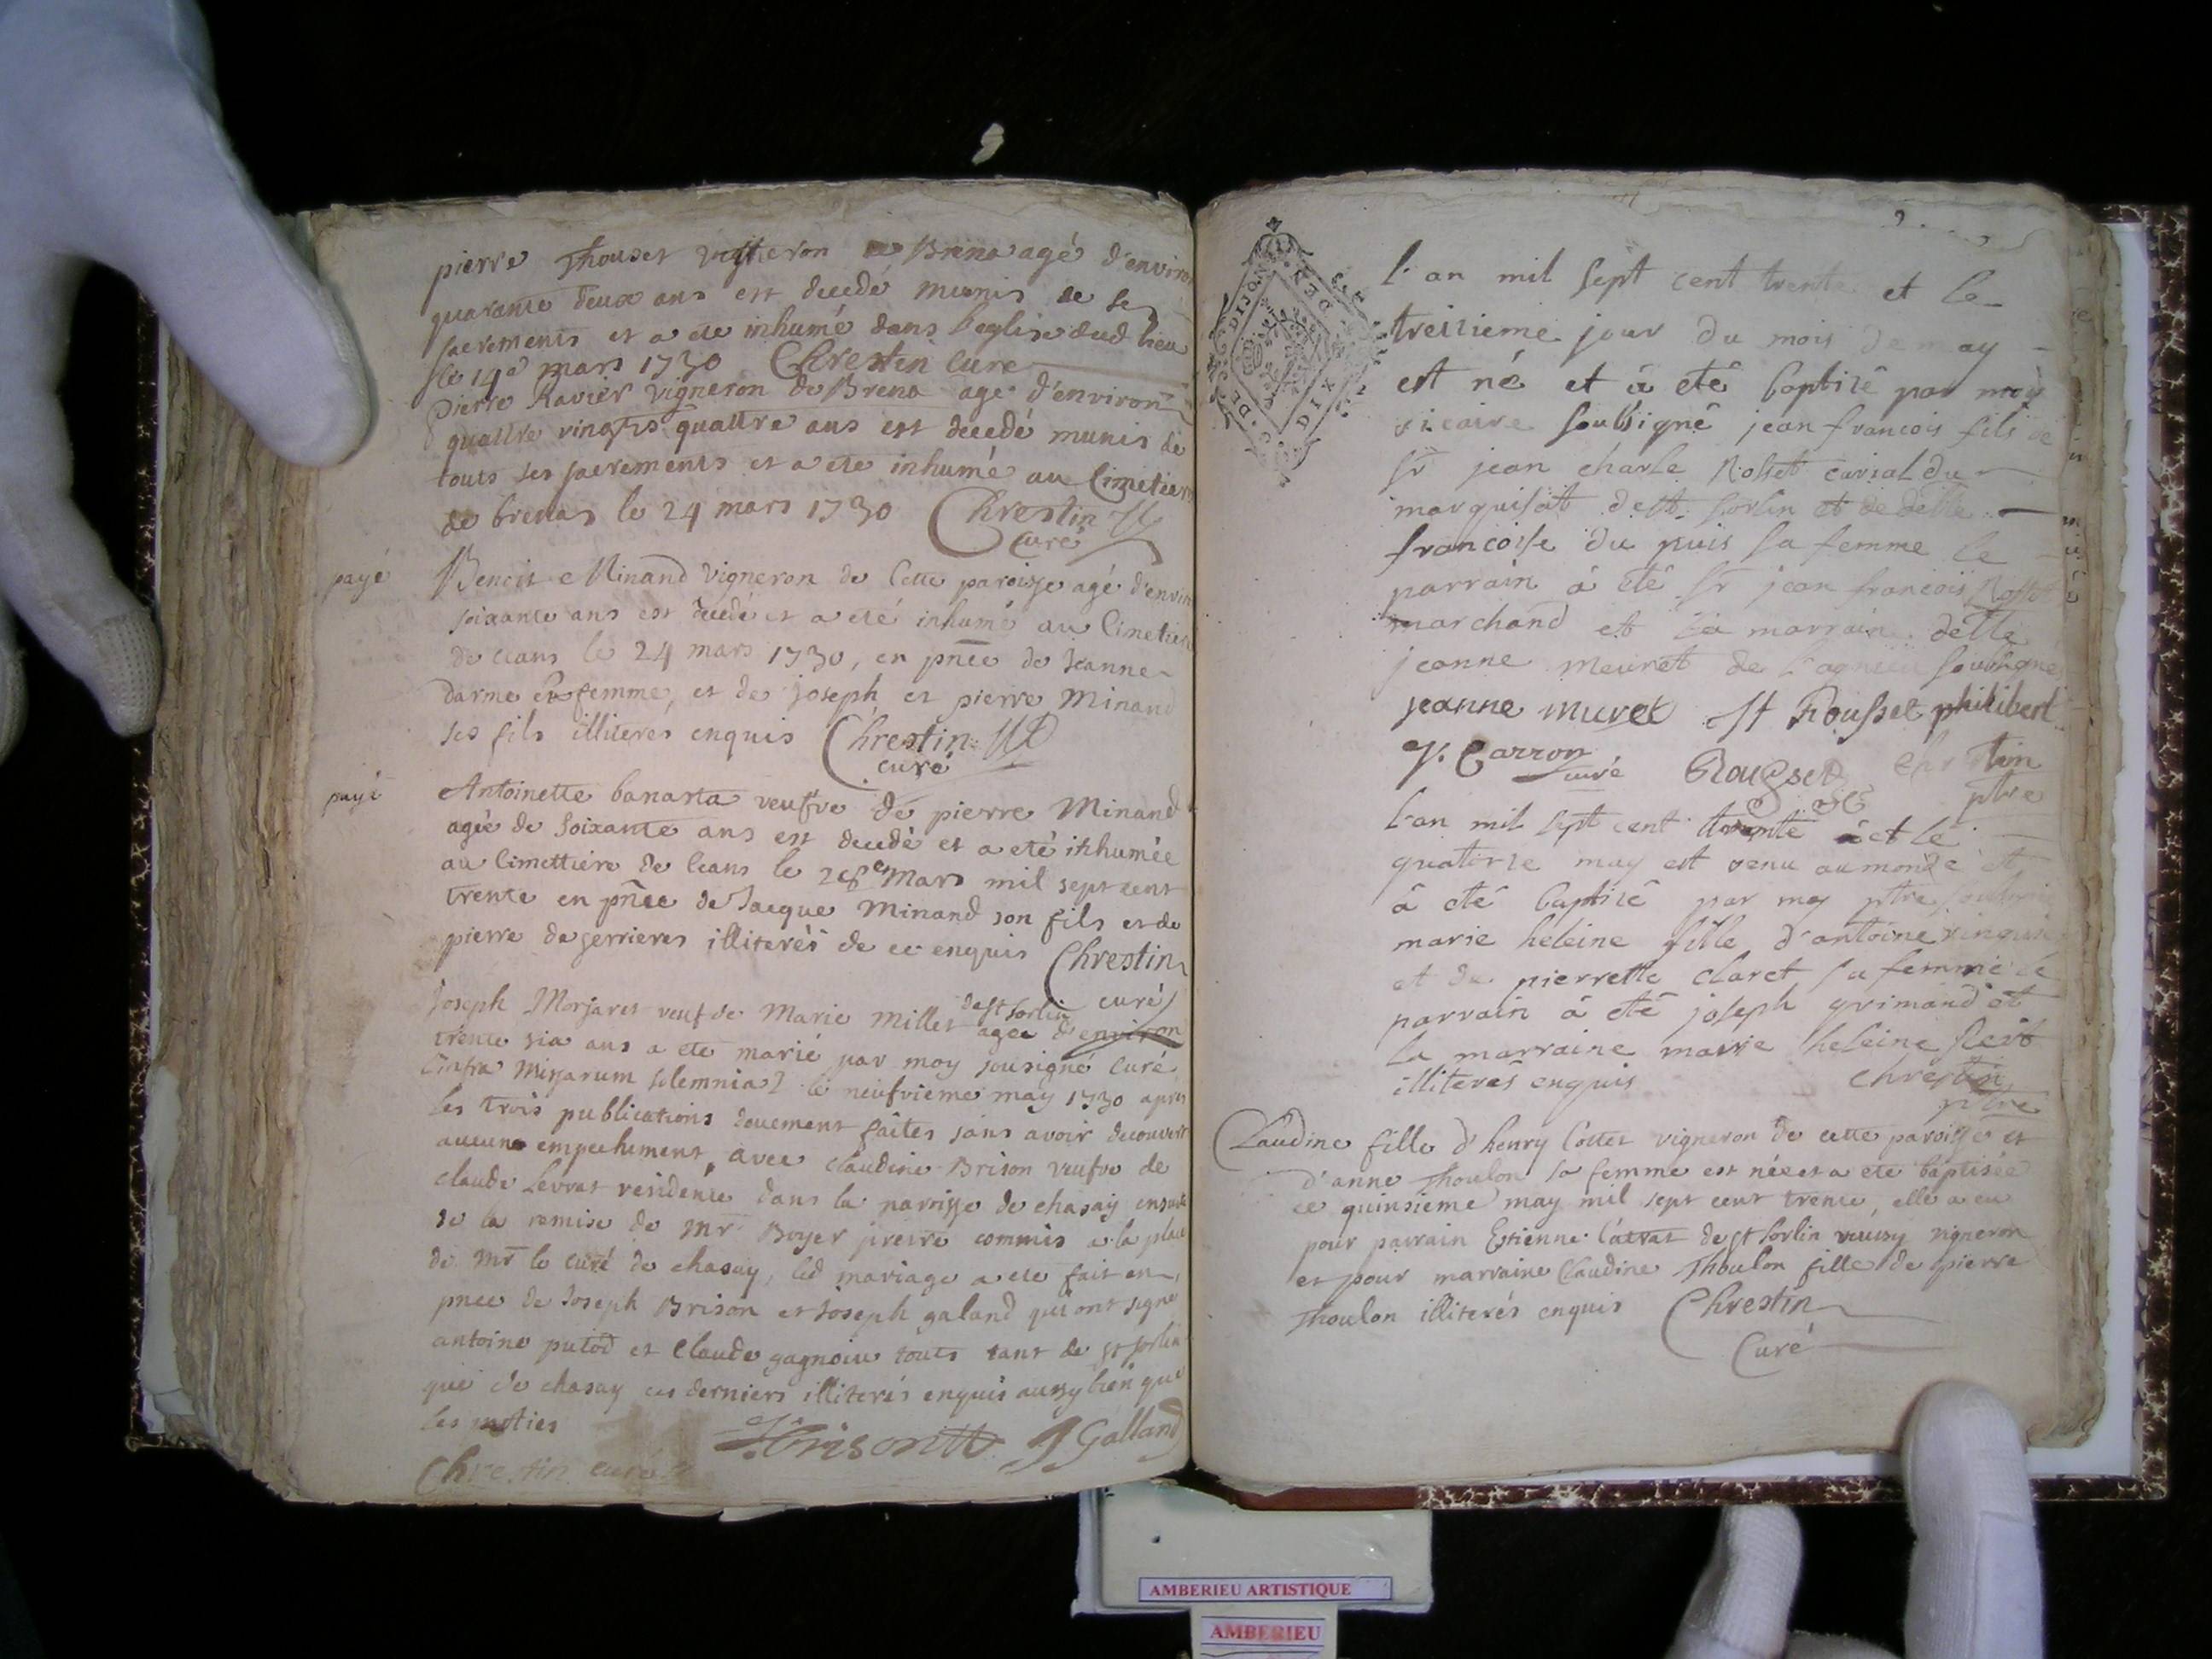 pierre Thouset vigneron de Brena agé d'environ
quarante deux ans est decedé munis de ses
sacrements et a ete inhumé dans l'eglise dud lieu
le 14e mars 1730 Chrestin Curé
Pierre Ravier vigneron de Brena agé d'environ
quattre vingts quattre ans est decedé munis de
touts ses sacrements et a ete inhumé au Cimetiere
de brenas le 24 mars 1730 Chrestin
Curé
payé
Benoit Minand Vigneron de Cette paroisse agé d'environ
soixante ans est decedé et a eté inhumé au Cimetiere
de ceans le 24 mars 1730, en pnce de Jeanne
darme sa femme, et de joseph et pierre Minand
ses fils illiterés enquis Chrestin
curé
payé
Antoinette banarta veufve de pierre Minand
agée de Soixante ans est decedé et a eté inhumée
au Cimettiere de Ceans le 28e Mars mil sept cent
trente en pnce de Jacque Minand son fils et de
pierre de serrieres illiterés de ce enquis Chrestin
curé
Joseph Morjaret veuf de Marie Millet de st sorlin agee d'environ
trente six ans a ete marié par moy sousigné Curé
[infra Missarum solemnia] le neufvieme may 1730 apres
les trois publications douement faites sans avoir decouvert
aucune empechement, avec claudine Brison veufve de
claude Levrat residente dans la parroisse de chasay ensuite
de la remise de Mr Boyer prestre commis a la place
de Mr le curé de chasay, led mariage a ete fait en
pnce de Joseph Brison et Joseph galand qui ont signé
antoine putod et Claude gagnoin touts tant de st sorlin
que de chasay ces derniers illiterés enquis aussy bien que
les parties
Brison J Galland
Chrestin curé
DIJON
DE
DIX
L'an mil sept cent trente et le
treisieme jour du mois de may
est né et à eté baptisé par moy
vicaire soubsigné jean francois fils de
Sr jean charle Rosset curial du
marquisat de st sorlin et de delle
francoise du puis sa femme le
parrain à eté Sr jean francois Rosset
marchand et la marraine delle
jeanne meuret de Lagnieu soubsigné
jeanne muret Rousset philibert
Carron
curé Rousset Chrestin
ptre
L'an mil sept cent trente et le
quatorze may est venu au monde et
à eté baptisé par moy ptre
marie heleine fille d'antoine
et de pierrette claret sa femme le
parrain à eté joseph grimand et
la marraine marie heleine
illiterés enquis Chrestin
ptre
Claudine fille d'henry Cottet vigneron de cette paroisse et
d'anne Thoulon sa femme est née et a ete baptisée
ce quinsieme may mil sept cent trente, elle a eu
pour parrain Estienne de st sorlin vigneron
et pour marraine Claudine Thoulon fille de pierre
Thoulon illiterés enquis Chrestin
Curé
AMBERIEU ARTISTIQUE
AMBERIEU